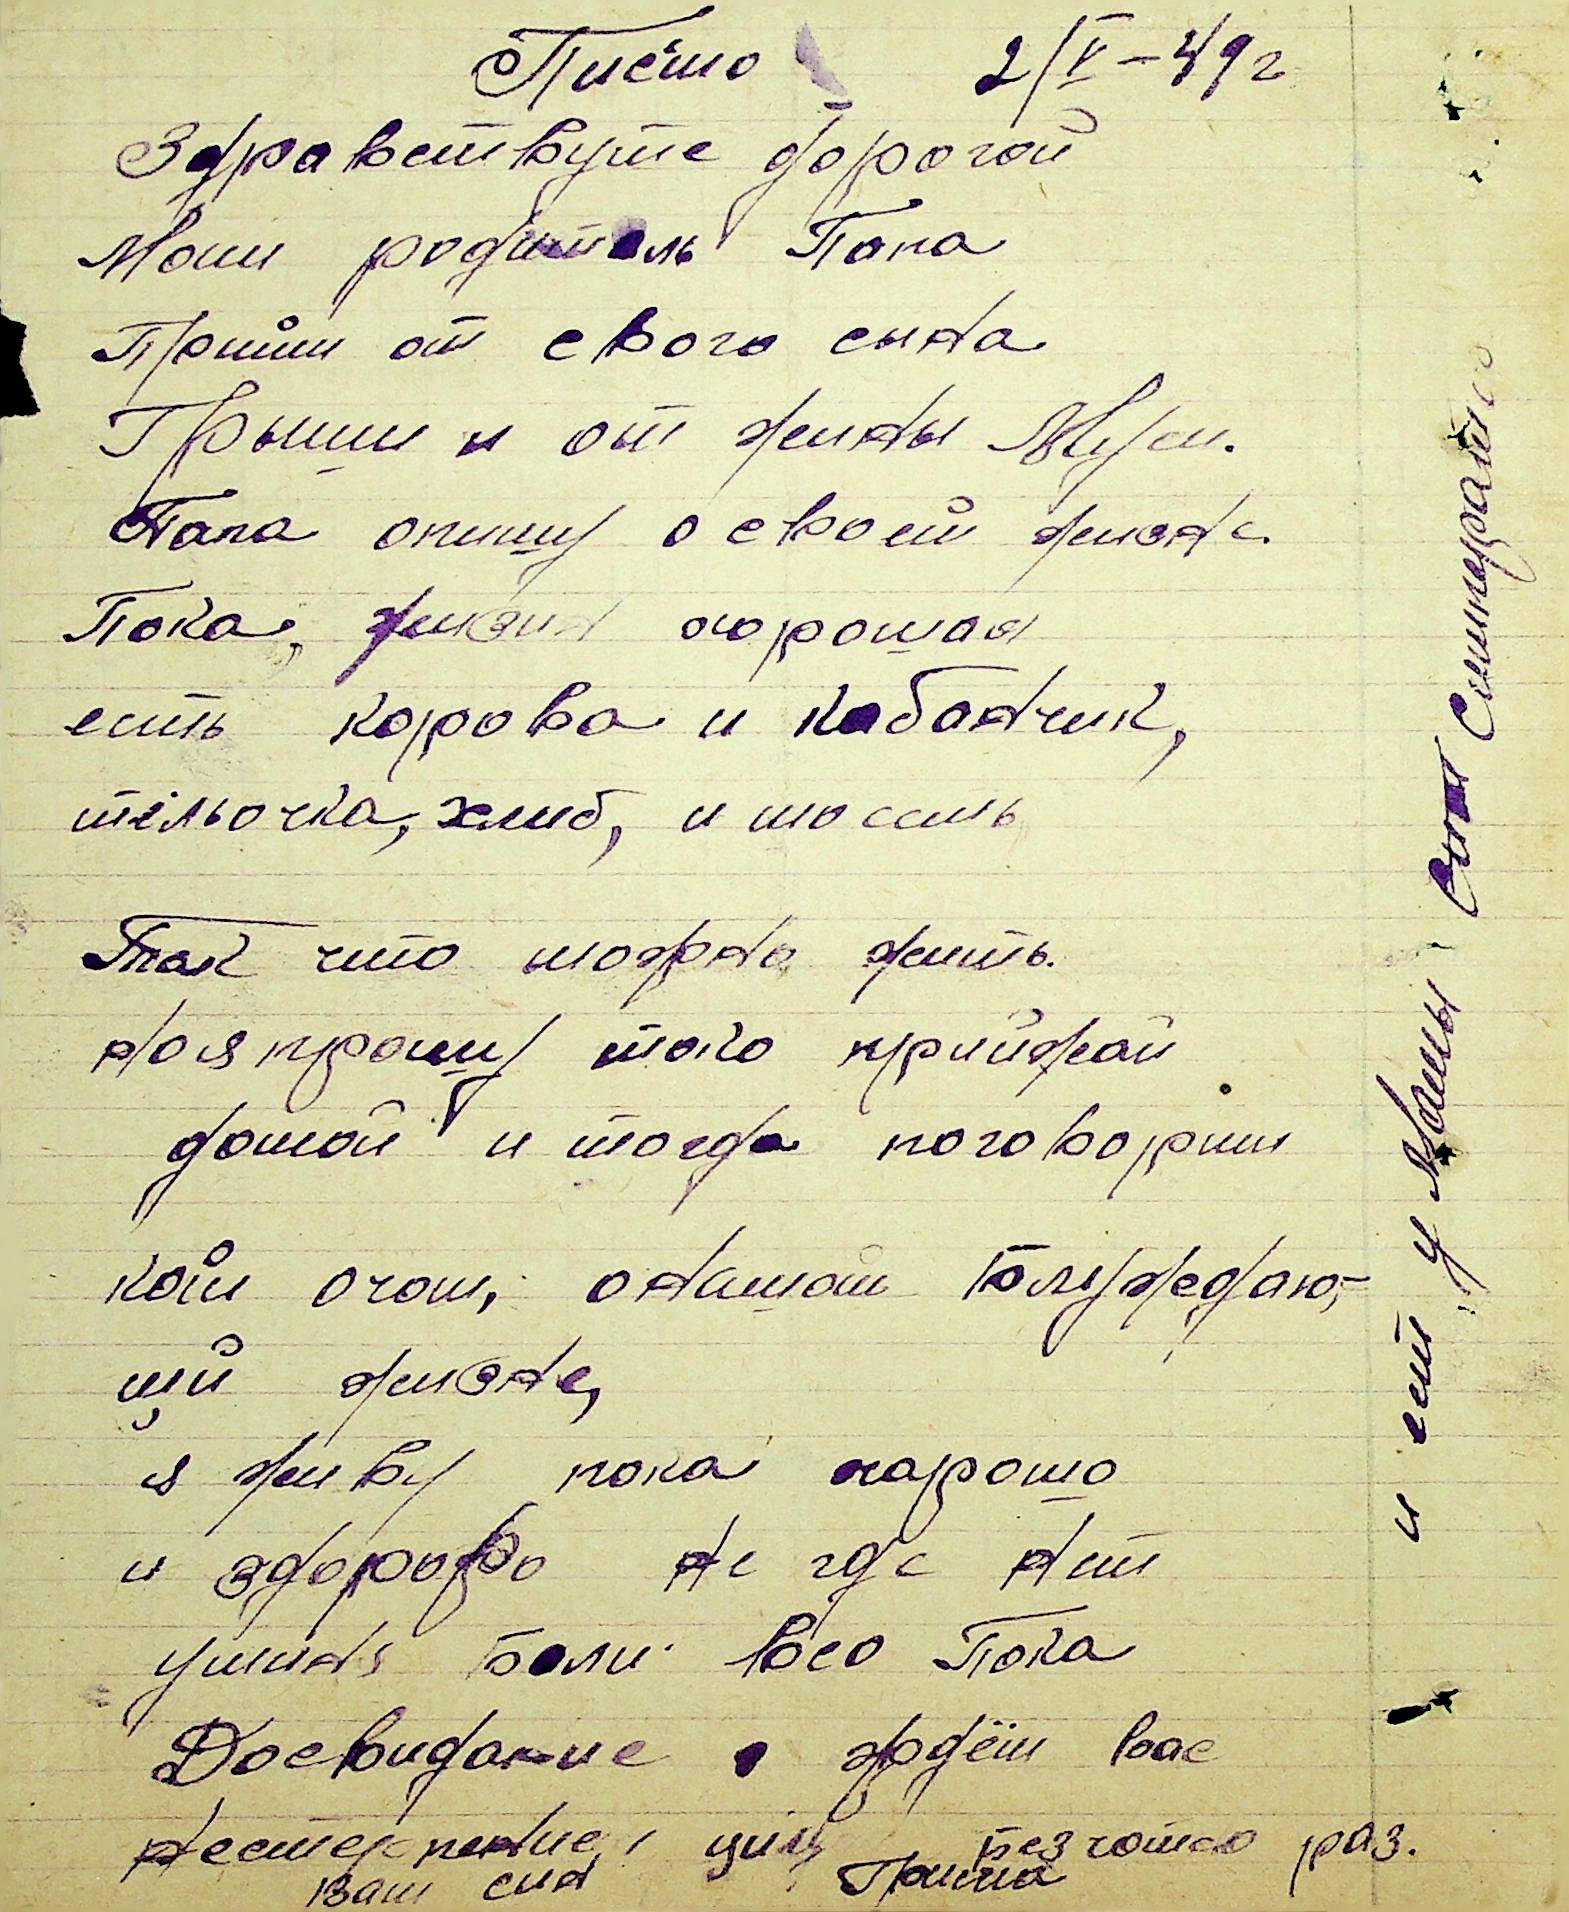 Письмо 2/V-49г
Здравствуте дорогой
Моии родитель Папа
Прийми от свого сына
Грыши и от жены Муси.
Папа опишу о своей жизне.
Пока, жизня хорошая
есть корова и кабанчик,
тельочка, хлиб, и
Так что можна жить.
Ноя прошу тико прийжай
домой и тогда поговорим
кой очом, онашой
щий жизне,
я живу пока харошо
и здорово не где нет
уминя боли. Всо Пока
Досвидание ждём вас
нестерпение, цилу безчотно раз.
Ваш син Гриша
и ет у Мамы